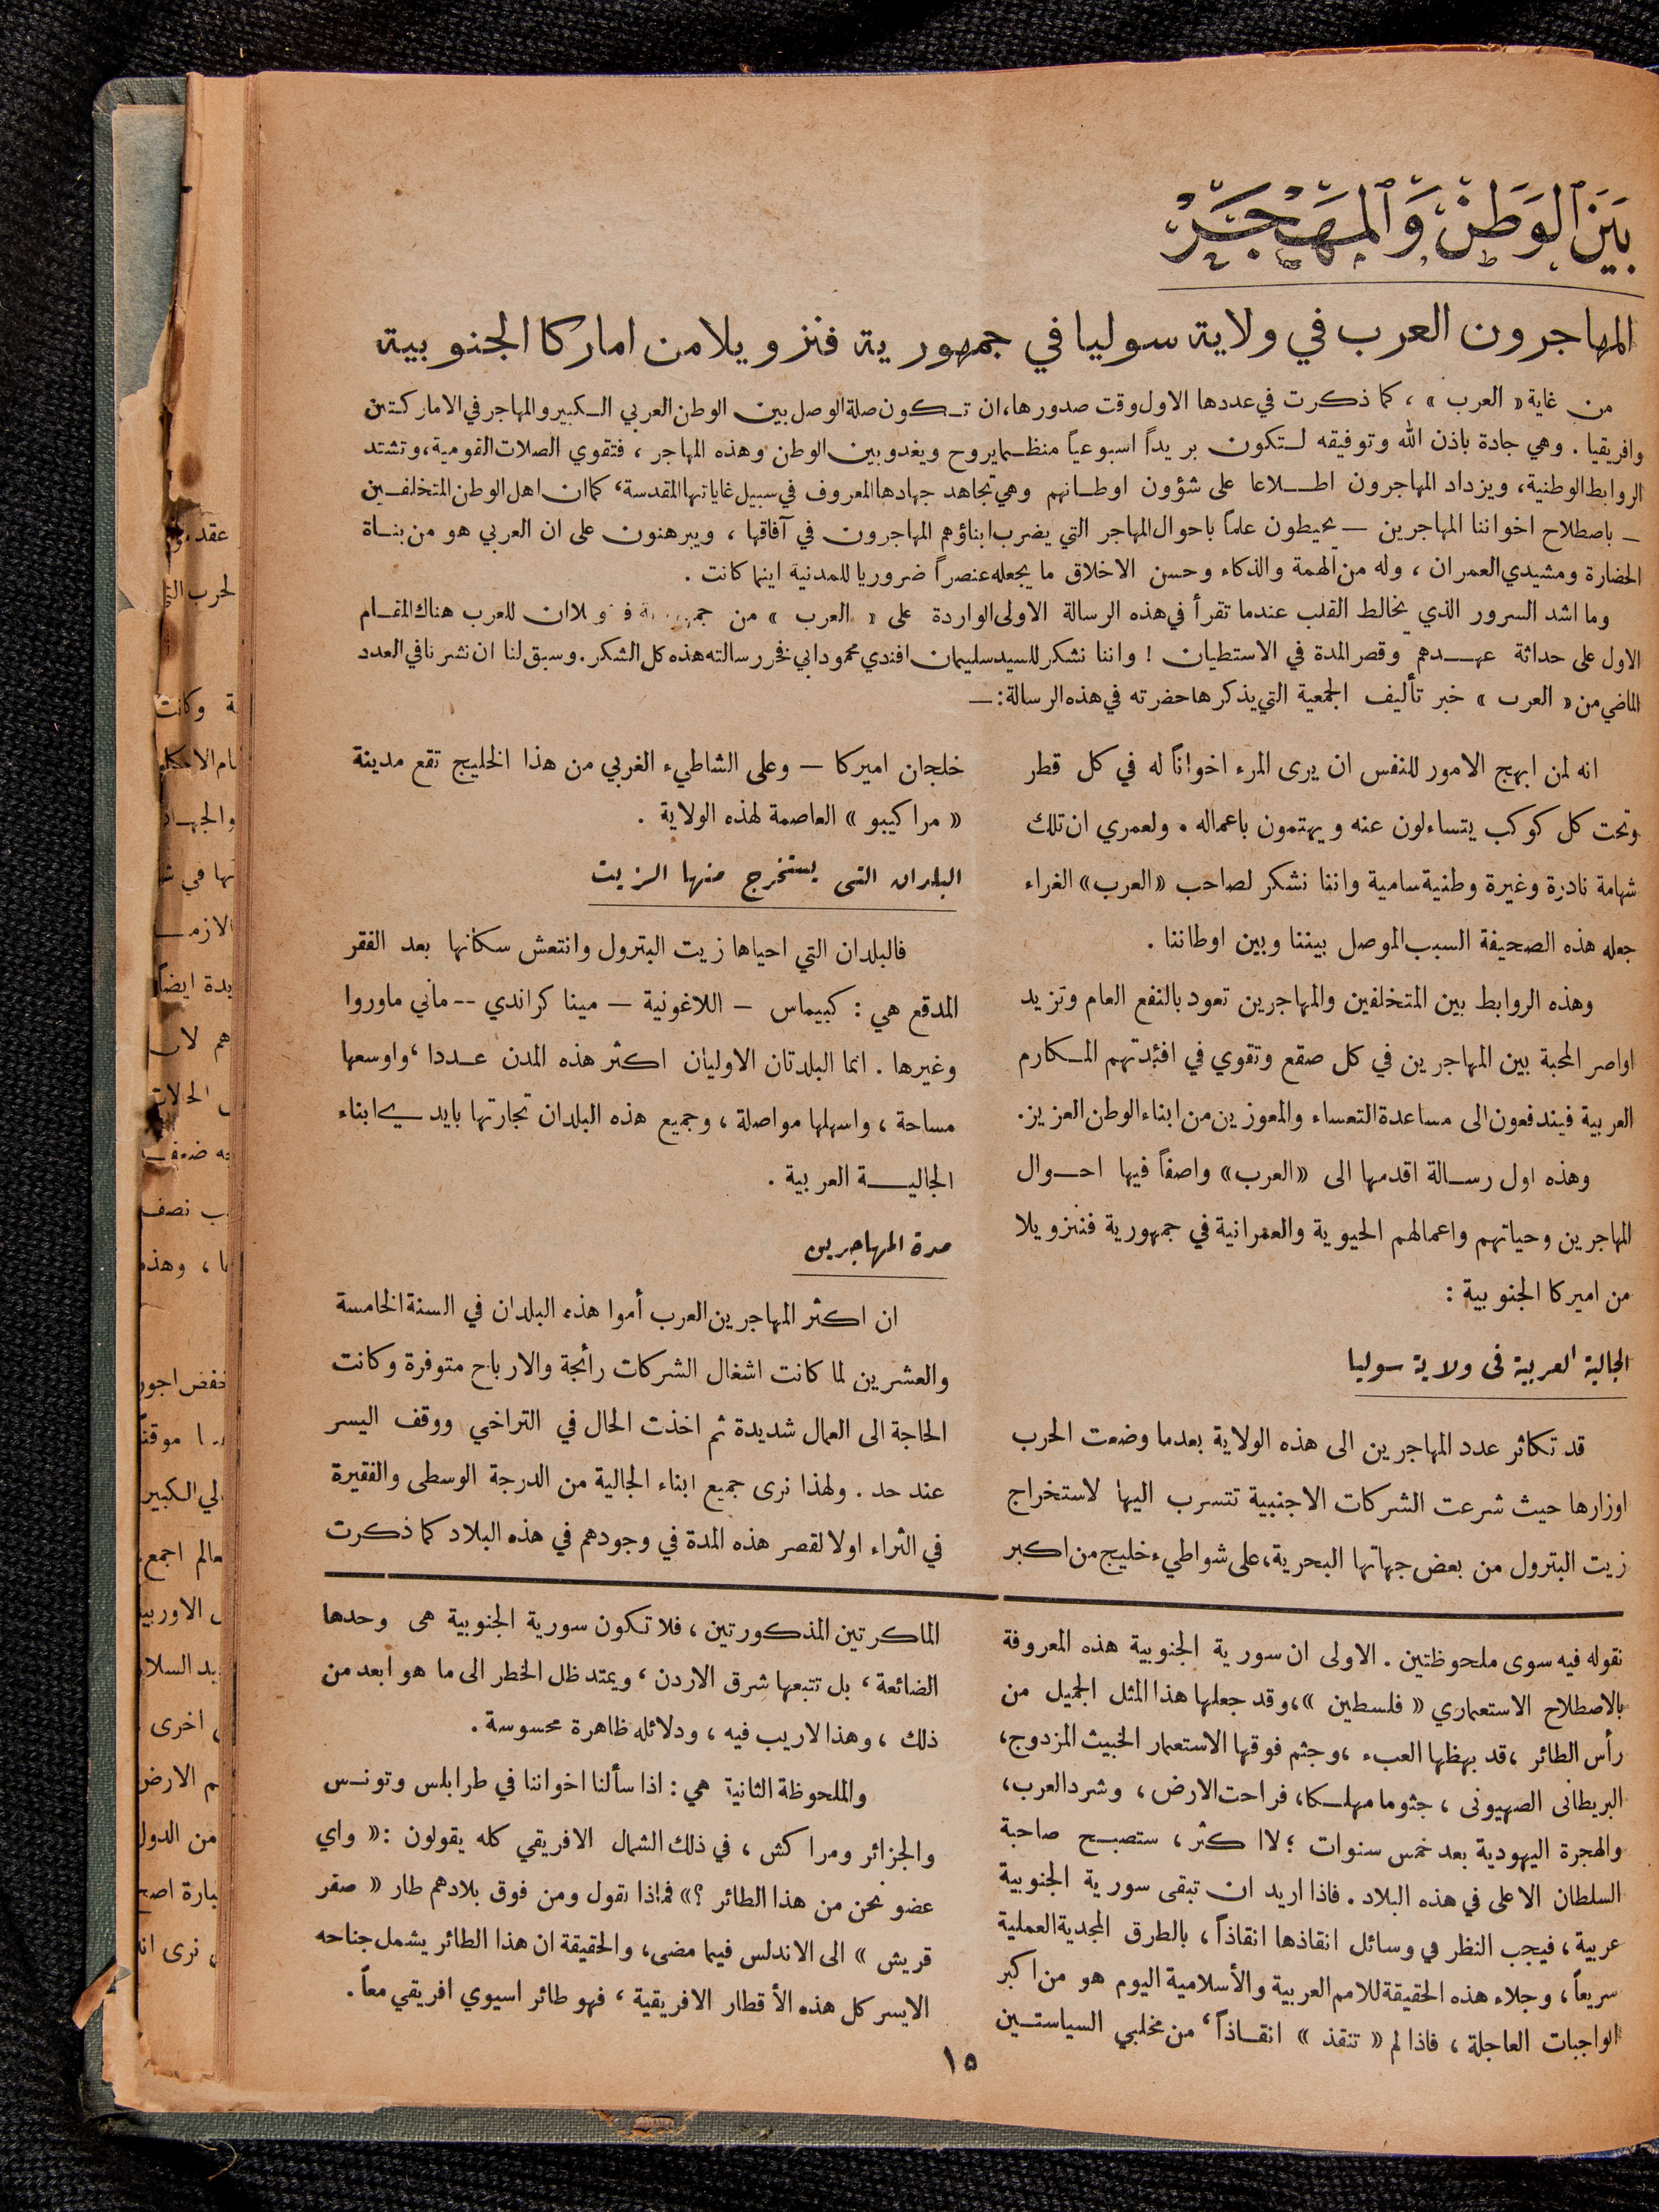 بَيْنَ ٱلْوَطَنْ وَٱلْمَهْجَرْ
المهاجرون العرب في ولاية سوليا في جمهورية فنزويلا من اماركا الجنوبية
من غاية « العرب » ، كما ذكرت في عددها الاول وقت صدورها، ان تكون صلة الوصل بين الوطن العربي الكبير والمهاجر في الاماركتين
وافريقيا . وهي جادة باذن الله وتوفيقه لتكون بريداً اسبوعياً منظما يروح ويغدو بين الوطن وهذه المهاجر ، فتقوي الصلات القومية، وتشتد
الروابط الوطنية، ويزداد المهاجرون اطلاعا على شؤون اوطانهم وهي تجاهد جهادها المعروف في سبيل غاياتها المقدسة، كما ان اهل الوطن المتخلفين
– باصطلاح اخواننا المهاجرين – يحيطون علماً باحوال المهاجر التي يضرب ابناؤهم المهاجرون في آفاقها ، ويبرهنون على ان العربي هو من بناة
الحضارة ومشيدي العمران ، وله من الهمة والذكاء وحسن الاخلاق ما يجعله عنصراً ضروريا للمدنية اينما كانت .
وما اشد السرور الذي يخالط القلب عندما تقرأ في هذه الرسالة الاولى الواردة على « العرب » من ان للعرب هناك المقام
الاول على حداثة عهدهم وقصر المدة في الاستطيان ! واننا نشكر للسيد سليمان افندي محمود ابي فخر رسالته هذه كل الشكر. وسبق لنا ان نشرنا في العدد
الماضي من « العرب » خبر تأليف الجمعية التي يذكرها حضرته في هذه الرسالة: –
انه لمن ابهج الامور للنفس ان يرى المرء اخواناً له في كل قطر
وتحت كل كوكب يتساءلون عنه ويهتمون باعماله . ولعمري ان تلك
شهامة نادرة وغيرة وطنية سامية واننا نشكر لصاحب «العرب» الغراء
جعله هذه الصحيفة السبب الموصل بيننا وبين اوطاننا .
وهذه الروابط بين المتخلفين والمهاجرين تعود بالنفع العام وتزيد
اواصر المحبة بين المهاجرين في كل صقع وتقوي في افئدتهم المكارم
العربية فيندفعون الى مساعدة التعساء والمعوزين من ابناء الوطن العزيز.
وهذه اول رسالة اقدمها الى «العرب» واصفاً فيها احوال
المهاجرين وحياتهم واعمالهم الحيوية والعمرانية في جمهورية فنزويلا
من اميركا الجنوبية :
الجالية العربية في ولاية سوليا
قد تكاثر عدد المهاجرين الى هذه الولاية بعدما وضعت الحرب
اوزارها حيث شرعت الشركات الاجنبية تتسرب اليها لاستخراج
زيت البترول من بعض جهاتها البحرية، على شواطيء خليج من اكبر
خلجان اميركا – وعلى الشاطيء الغربي من هذا الخليج تقع مدينة
« مراكيبو » العاصمة لهذه الولاية .
البلدان التي يستخرج منها الزيت
فالبلدان التي احياها زيت البترول وانتعش سكانها بعد الفقر
المدقع هي : كبيماس – اللاغونية – مينا كراندي -- ماني ماوروا
وغيرها . انما البلدتان الاوليان اكثر هذه المدن عددا ، واوسعها
مساحة ، واسهلها مواصلة ، وجميع هذه البلدان تجارتها بايدي ابناء
الجالية العربية .
مدة المهاجرين
ان اكثر المهاجرين العرب أموا هذه البلدان في السنة الخامسة
والعشرين لما كانت اشغال الشركات رائجة والارباح متوفرة وكانت
الحاجة الى العمال شديدة ثم اخذت الحال في التراخي ووقف اليسر
عند حد . ولهذا نرى جميع ابناء الجالية من الدرجة الوسطى والفقيرة
في الثراء اولا لقصر هذه المدة في وجودهم في هذه البلاد كما ذكرت
نقوله فيه سوى ملحوظتين . الاولى ان سورية الجنوبية هذه المعروفة
بالاصطلاح الاستعماري « فلسطين »، وقد جعلها هذا المثل الجميل من
رأس الطائر ، قد بهظها العبء ، وجثم فوقها الاستعمار الخبيث المزدوج،
البريطانى الصهيونى ، جثوما مهلكا، فراحت الارض ، وشرد العرب،
والهجرة اليهودية بعد خمس سنوات ؛ لا اكثر ، ستصبح صاحبة
السلطان الاعلى في هذه البلاد . فاذا اريد ان تبقى سورية الجنوبية
عربية ، فيجب النظر في وسائل انقاذها انقاذاً ، بالطرق المجدية العملية
سريعاً ، وجلاء هذه الحقيقة للامم العربية والأسلامية اليوم هو من اكبر
الواجبات العاجلة ، فاذا لم « تنقذ » انقاذاً ، من مخلبي السياستين
الماكرتين المذكورتين ، فلا تكون سورية الجنوبية هى وحدها
الضائعة ، بل تتبعها شرق الاردن ، ويمتد ظل الخطر الى ما هو ابعد من
ذلك ، وهذا لاريب فيه ، ودلائله ظاهرة محسوسة .
والملحوظة الثانية هي : اذا سألنا اخواننا في طرابلس وتونس
والجزائر ومراكش ، في ذلك الشمال الافريقي كله يقولون : « واي
عضو نحن من هذا الطائر ؟» فماذا نقول ومن فوق بلادهم طار « صقر
قريش » الى الاندلس فيما مضى، والحقيقة ان هذا الطائر يشمل جناحه
الايسر كل هذه الأقطار الافريقية ، فهو طائر اسيوي افريقي معاً .
١٥